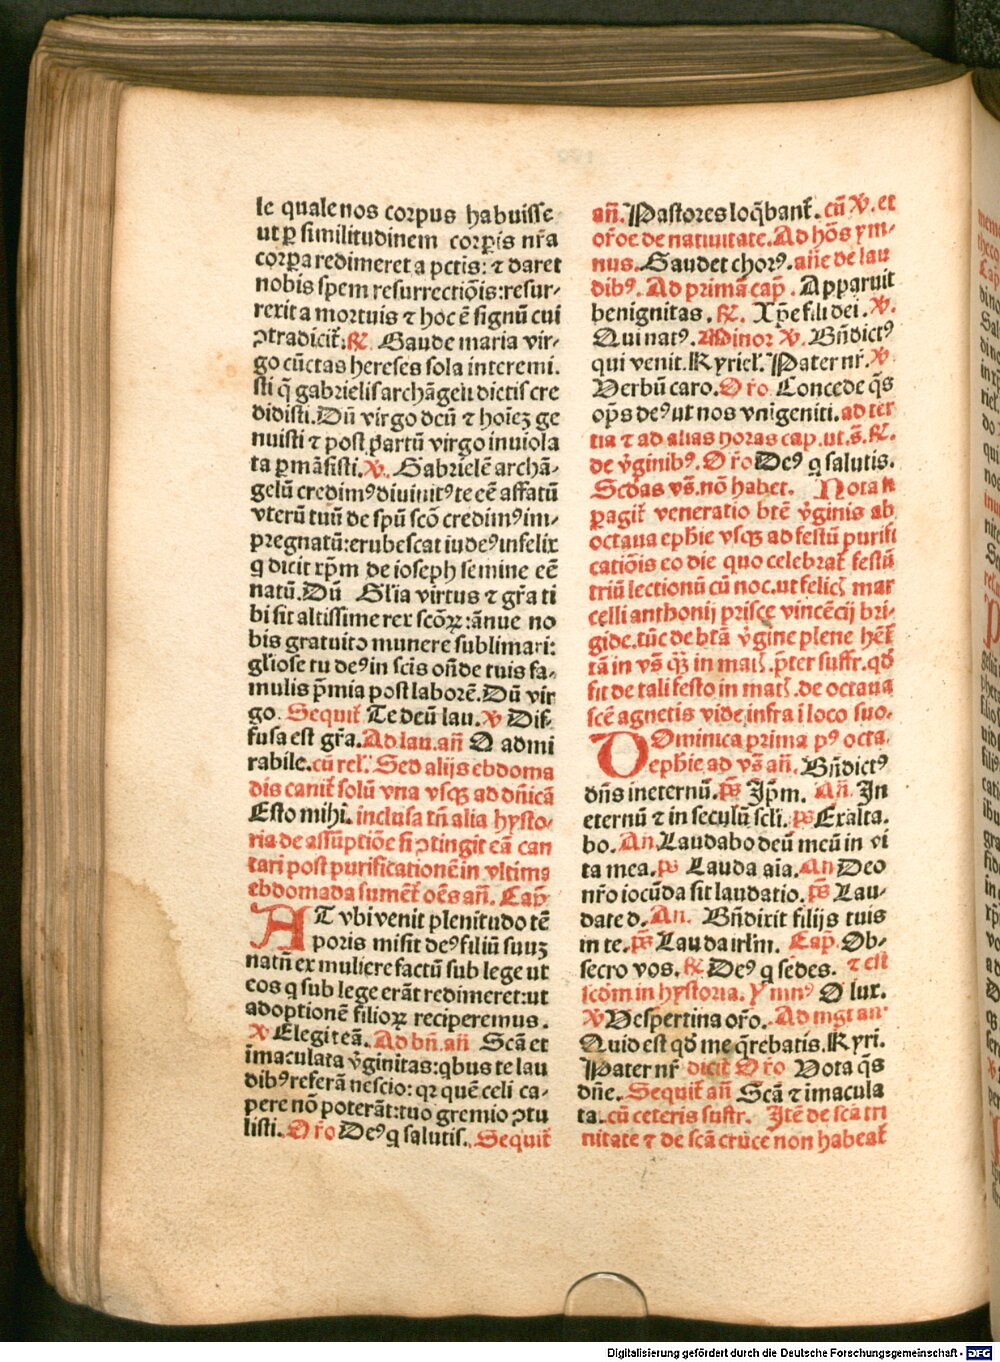 le quale nos corpus habuisse
ut ꝑ similitudinem corꝑis nr̄a
corꝑa redimeret a pctis: ⁊ daret
nobis spem resurrectiōis: resur-
rexit a mortuis ⁊ hoc ē signū cui
ꝯtradicit̄. ℟. Gaude maria vir-
go cūctas hereses sola interemi.
sti q̄ gabrielis archāgeli dictis cre
didisti. Dū virgo deū ⁊ hoīeꝫ ge
nuisti ⁊ post partū virgo inuiola
ta ꝑmāsisti. ℣. Gabrielē archā-
gelū credimꝰ diuinitꝰ te eē affatū
vterū tuū de spū scō credimꝰ im-
pregnatū: erubescat iudeꝰ infelix
q dicit xp̄m de ioseph semine eē
natū. Dū Gl̄ia virtus ⁊ gr̄a ti
bi sit altissime rex scōꝝ: ānue no
bis gratuito munere sublimari:
gl̄iose tu deꝰ in scis on̄de tuis fa-
mulis p̄mia post laborē. Dū vir
go. Sequit̄ Te deū lau. ℣ Dif-
fusa est gr̄a. Ad lau. an̄ O admi
rabile. cū rel̄. Sed alijs ebdoma
dis canit̄ solū vna vsqꝫ ad dn̄icā
Esto mihi. inclusa tn̄ alia hysto-
ria de assūptiōe si ꝯtingit eā can
tari post purificationē in vltima
ebdomada sumēt̄ oēs an̄. Cap̄
AT vbi venit plenitudo tē
poris misit deꝰ filiū suuꝫ
natū ex muliere factū sub lege ut
eos q sub lege erāt redimeret: ut
adoptionē filioꝝ reciperemus.
℣ Elegit eā. Ad bn̄. an̄ Scā et
īmaculata v̄ginitas: qbus te lau
dibꝰ referā nescio: qꝛ quē celi ca-
pere nō poterāt: tuo gremio ꝯtu
listi. Or̄o Deꝰ q salutis. Sequit̄
an̄. Pastores loq̄bant̄. cū ℣. et
or̄oe de natiuitate. Ad hōs ym-
nus. Gaudet chorꝰ. an̄e de lau
dibꝰ. Ad primā cap̄. Apparuit
benignitas. ℟. Xp̄e fili dei. ℣.
Qui natꝰ. Minor ℣. Bn̄dictꝰ
qui venit. Kyriel̄. Pater nr̄. ℣.
Verbū caro. Or̄o Concede q̄s
op̄s deꝰ ut nos vnigeniti. ad ter
tia ⁊ ad alias horas cap. ut. s̄. ℟.
de v̄ginibꝰ. Or̄o Deꝰ q salutis.
Scdas vs̄. nō habet. Nota ꝙ
ꝑagit̄ veneratio btē v̄ginis ab
octaua eph̄ie vsqꝫ ad festū purifi
catiōis eo die quo celebrat̄ festū
triū lectionū cū noc. ut felicꝫ mar
celli anthonij prisce vincēcij bri-
gide. tūc de btā v̄gine plene hēt̄
tā in vs̄ qꝫ in matꝫ. p̄ter suffr. qd̄
fit de tali festo in matꝫ. de octaua
scē agnetis vide infra ī loco suo.
DOminica prima pꝰ octa.
eph̄ie ad vs̄ an̄. Bn̄dictꝰ
dn̄s in eternū. p̄s Ip̄m. An̄. In
eternū ⁊ in seculū scli. p̄s Exalta.
bo. An̄ Laudabo deū meū in vi
ta mea. p̄s Lauda aīa. An̄ Deo
nr̄o iocūda sit laudatio. p̄s Lau-
date d. An̄. Bn̄dixit filijs tuis
in te. p̄s Lauda irl̄m. Cap̄. Ob-
secro vos. ℟. Deꝰ q sedes. ⁊ est
scōm in hystoria. Ymnꝰ O lux.
℣ Vespertina or̄o. Ad mgt an̄
Quid est qd̄ me q̄rebatis. Kyri.
Pater nr̄ dicit̄ Or̄o Vota q̄s
dn̄e. Sequit̄ an̄ Scā ⁊ imacula
ta. cū ceteris suffr. Itē de scā tri
nitate ⁊ de scā cruce non habeat̄
Digitalisierung gefördert durch die Deutsche Forschungsgemeinschaft - DFG